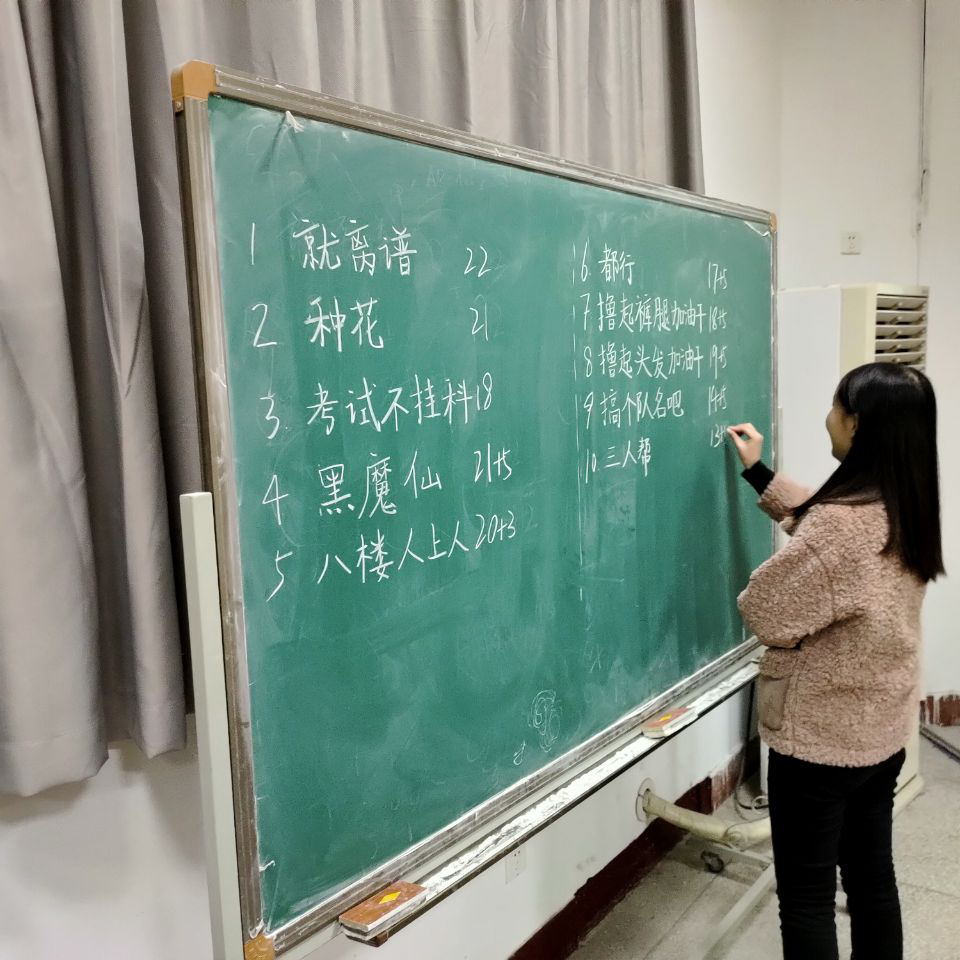 1 就离谱 22
2 种花 21
3. 考试不挂科 18
4 黑魔仙 21+5
5 八楼人上人 20+3
6. 都行 17+5
7 撸起裤腿加油干 18+5
8 撸起头发加油干 19+5
9 搞个队名吧 19+5
10. 三人帮 13+